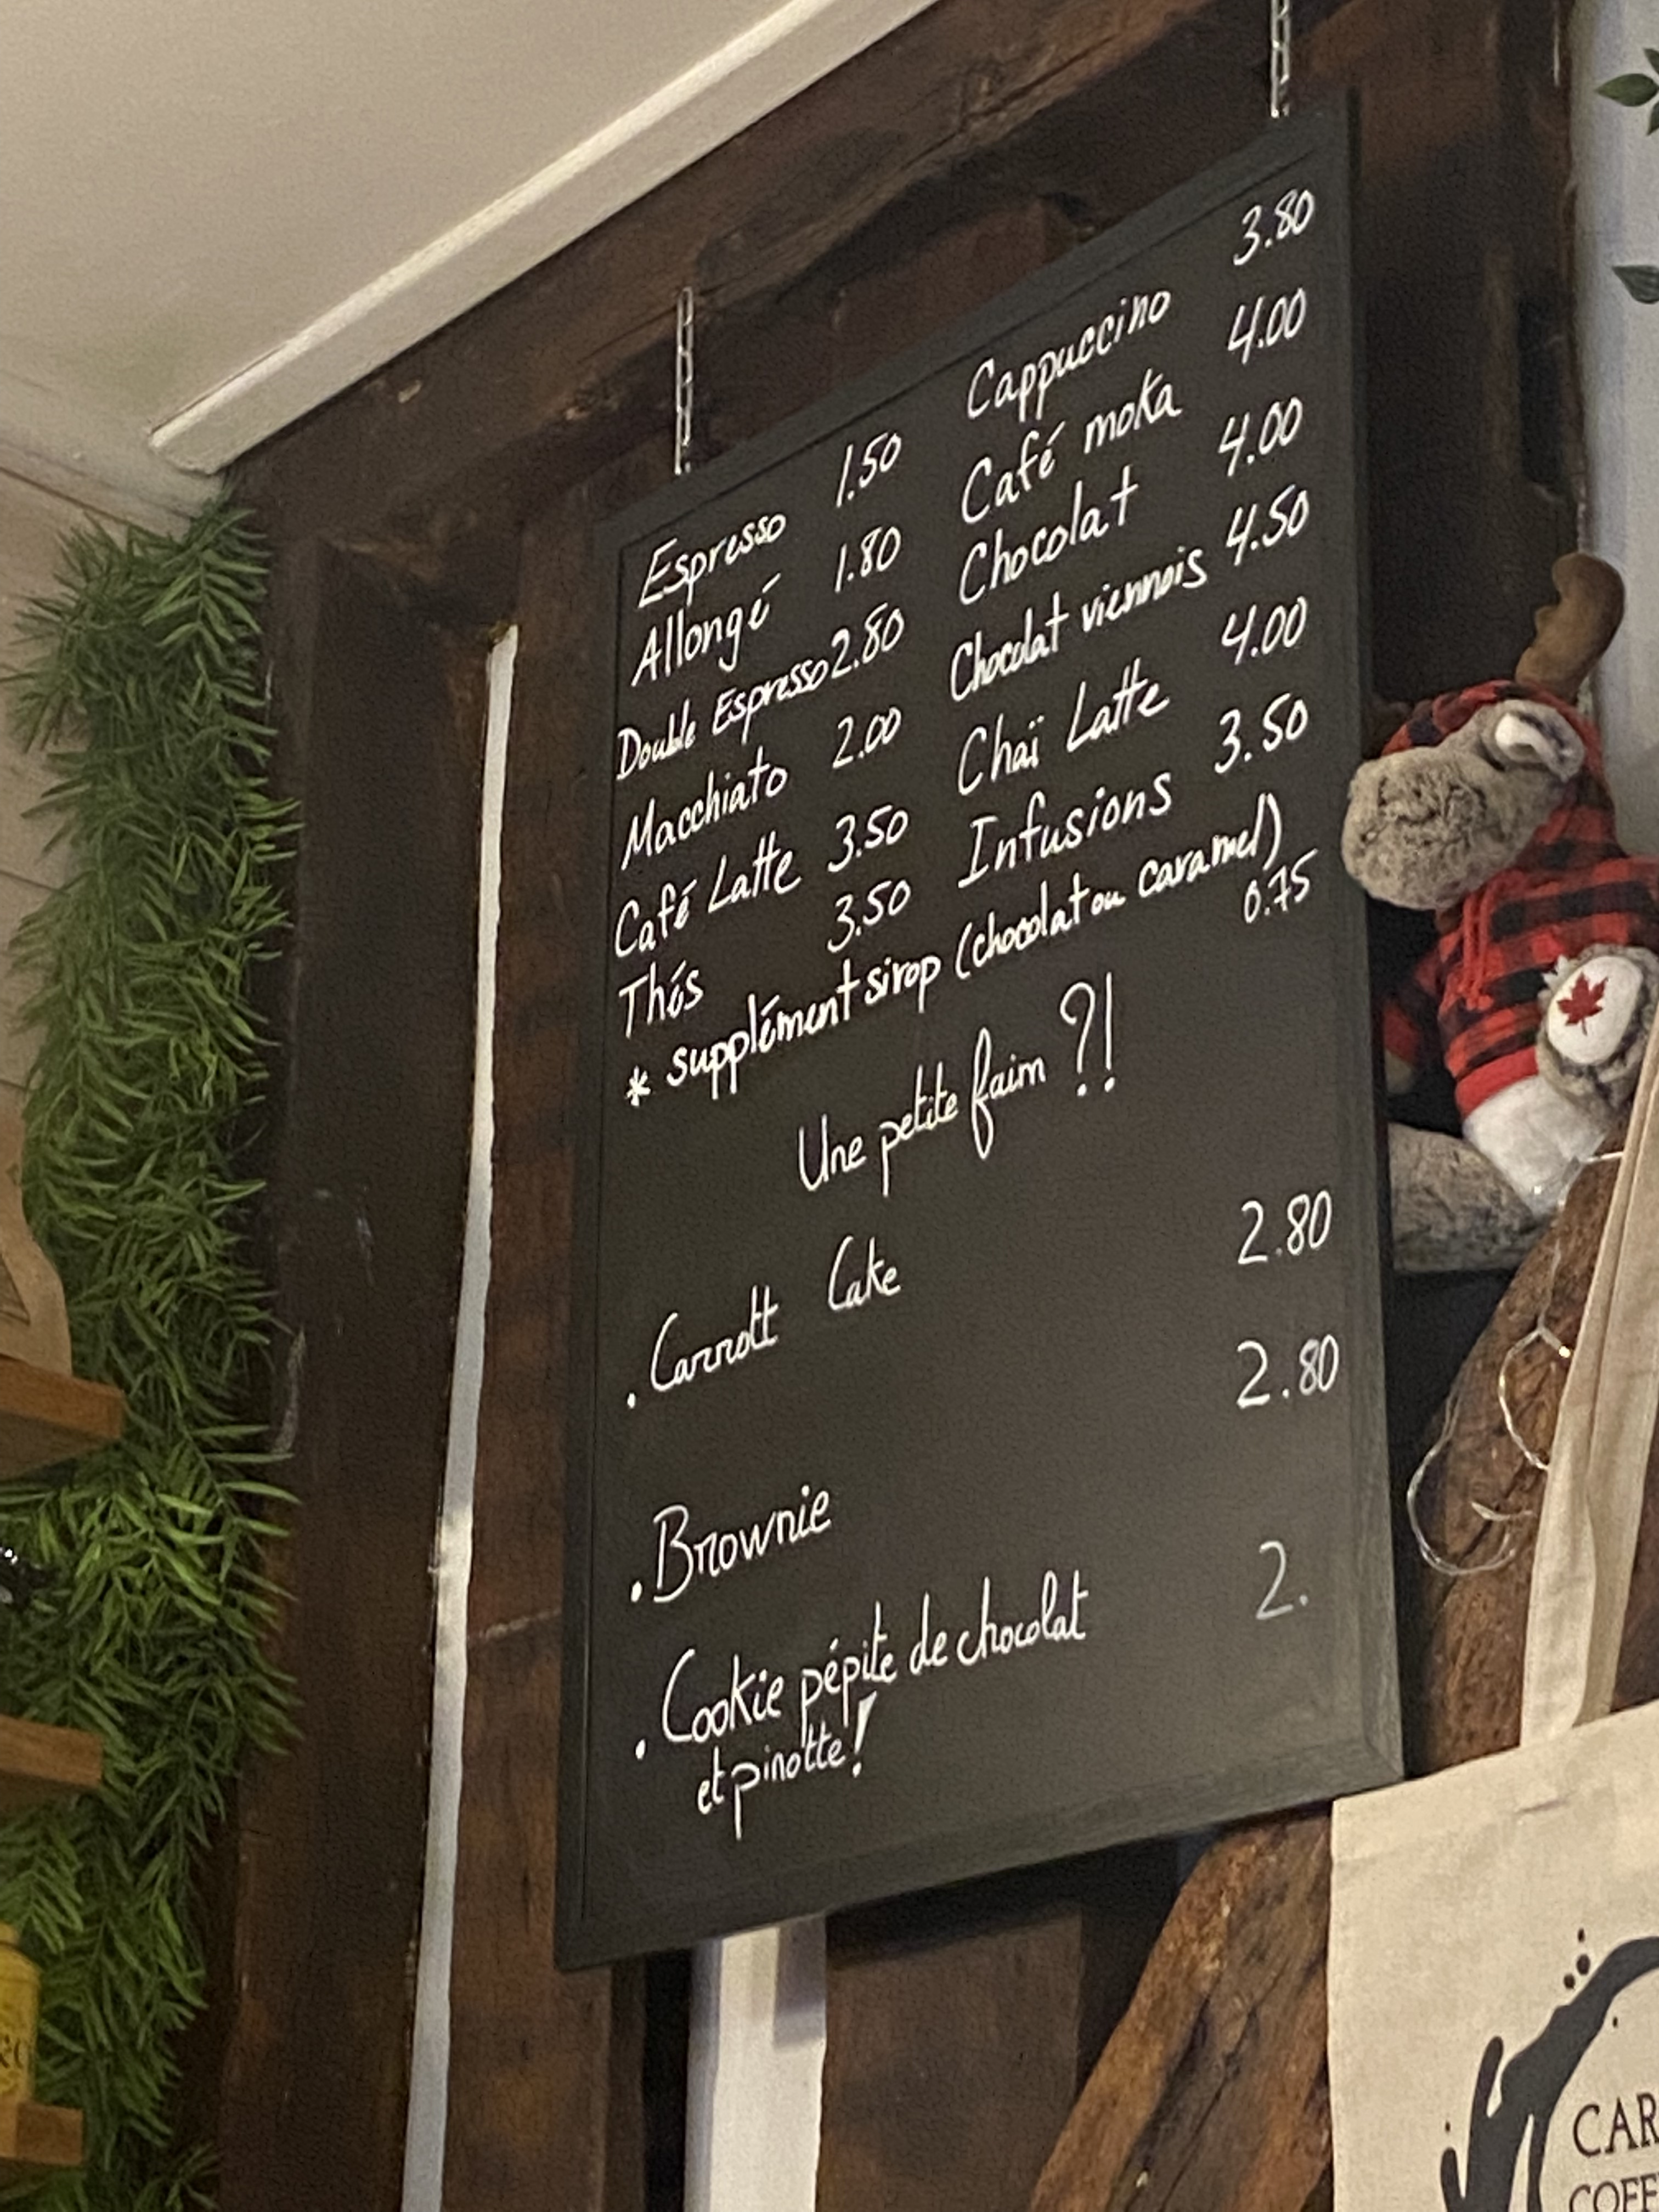 Espresso 1.50
Allongé 1.80
Double Espresso 2.80
Macchiato 2.00
Café Latte 3.50
Thés 3.50
Cappuccino 3.80
Café moka 4.00
Chocolat 4.00
Chocolat viennois 4.50
Chaï Latte 4.00
Infusions 3.50
* supplément sirop (chocolat ou caramel)
0.75
Une petite faim ?!
. Carrott Cake 2.80
. Brownie 2.80
. Cookie pépite de chocolat 2.
et pinotte!
CAR
COFF